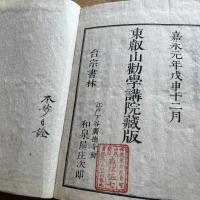 嘉永元年戊申十二月
東叡山勸學講院藏版
台宗書林
江戸下谷廣徳寺前
和泉屋庄次郎